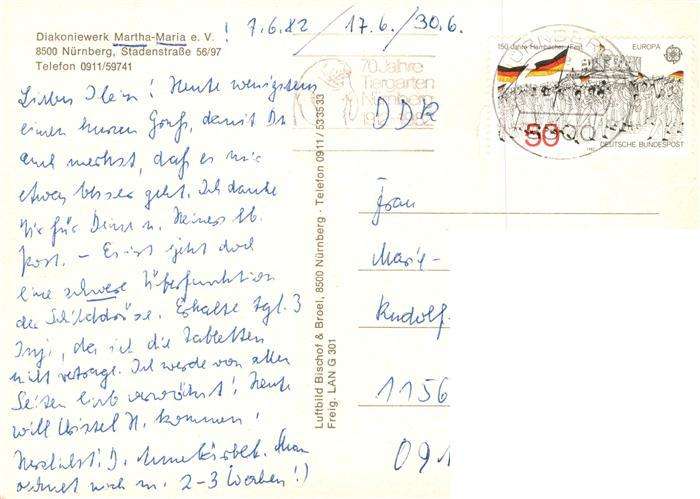 Diakoniewerk Martha-Maria e. V.
8500 Nürnberg, Stadenstraße 56/97
Telefon 0911/59741
! 7.6.82 / 17.6. / 30.6.
! Heute wenigstens
einen kurzen Gruß, damit Du
auch merkst, daß es mir
etwas besser geht. Ich danke
Dir für Deine u. Heiners lb.
Post. – Es ist jetzt doch
eine schwere Überfunktion
der Schilddrüse. Erhalte tgl. 3
Inj., da ich die Tabletten
nicht vertrage. Ich werde von allen
Seiten lieb verwöhnt! Heute
will Christel N. kommen!
Herzlichst! D.
rechnet noch m. 2-3 Wochen!)
Luftbild Bischof & Broel, 8500 Nürnberg · Telefon 0911 / 533533
Freig. LAN G 301
70 Jahre
Tiergarten
Nürnberg
NÜRNBERG
150 Jahre Hambacher Fest
EUROPA
50
DEUTSCHE BUNDESPOST
DDR
Frau
Marie-
Rudolf-
1156
091